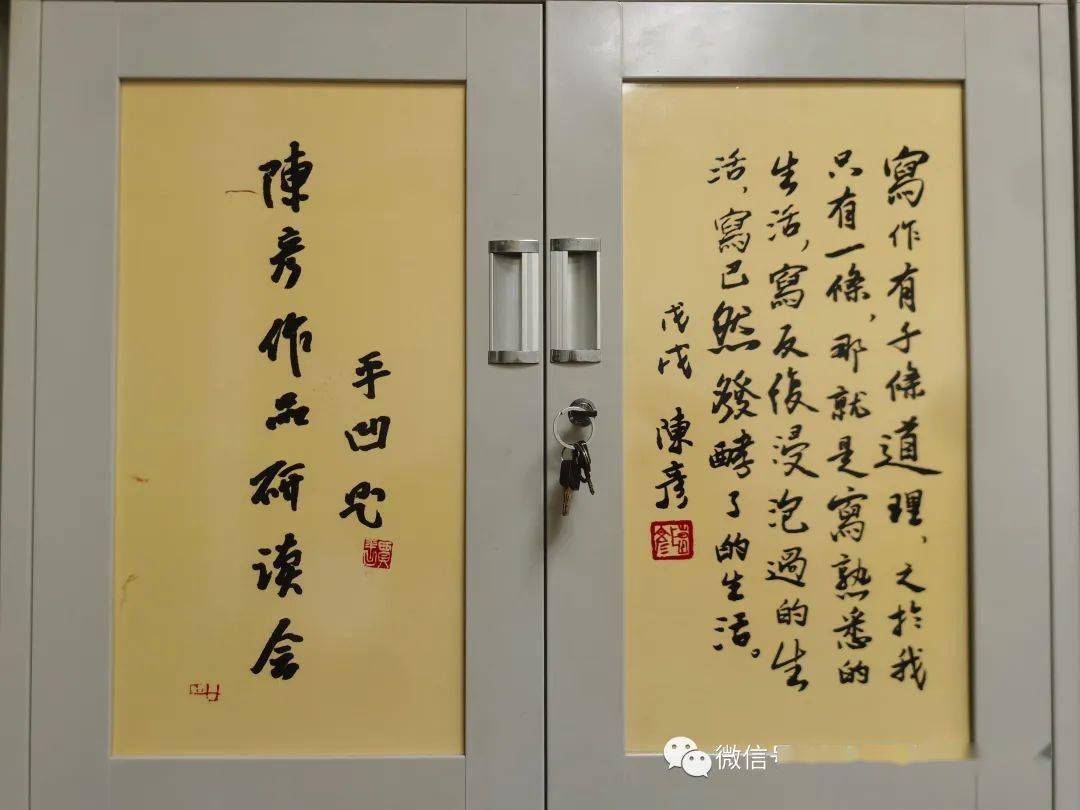 陳彦作品研读会
平凹题
寫作有千條道理，之於我
只有一條，那就是寫熟悉的
生活，寫反復浸泡過的生
活，寫已然發酵了的生活。
戊戌 陳彦
微信号